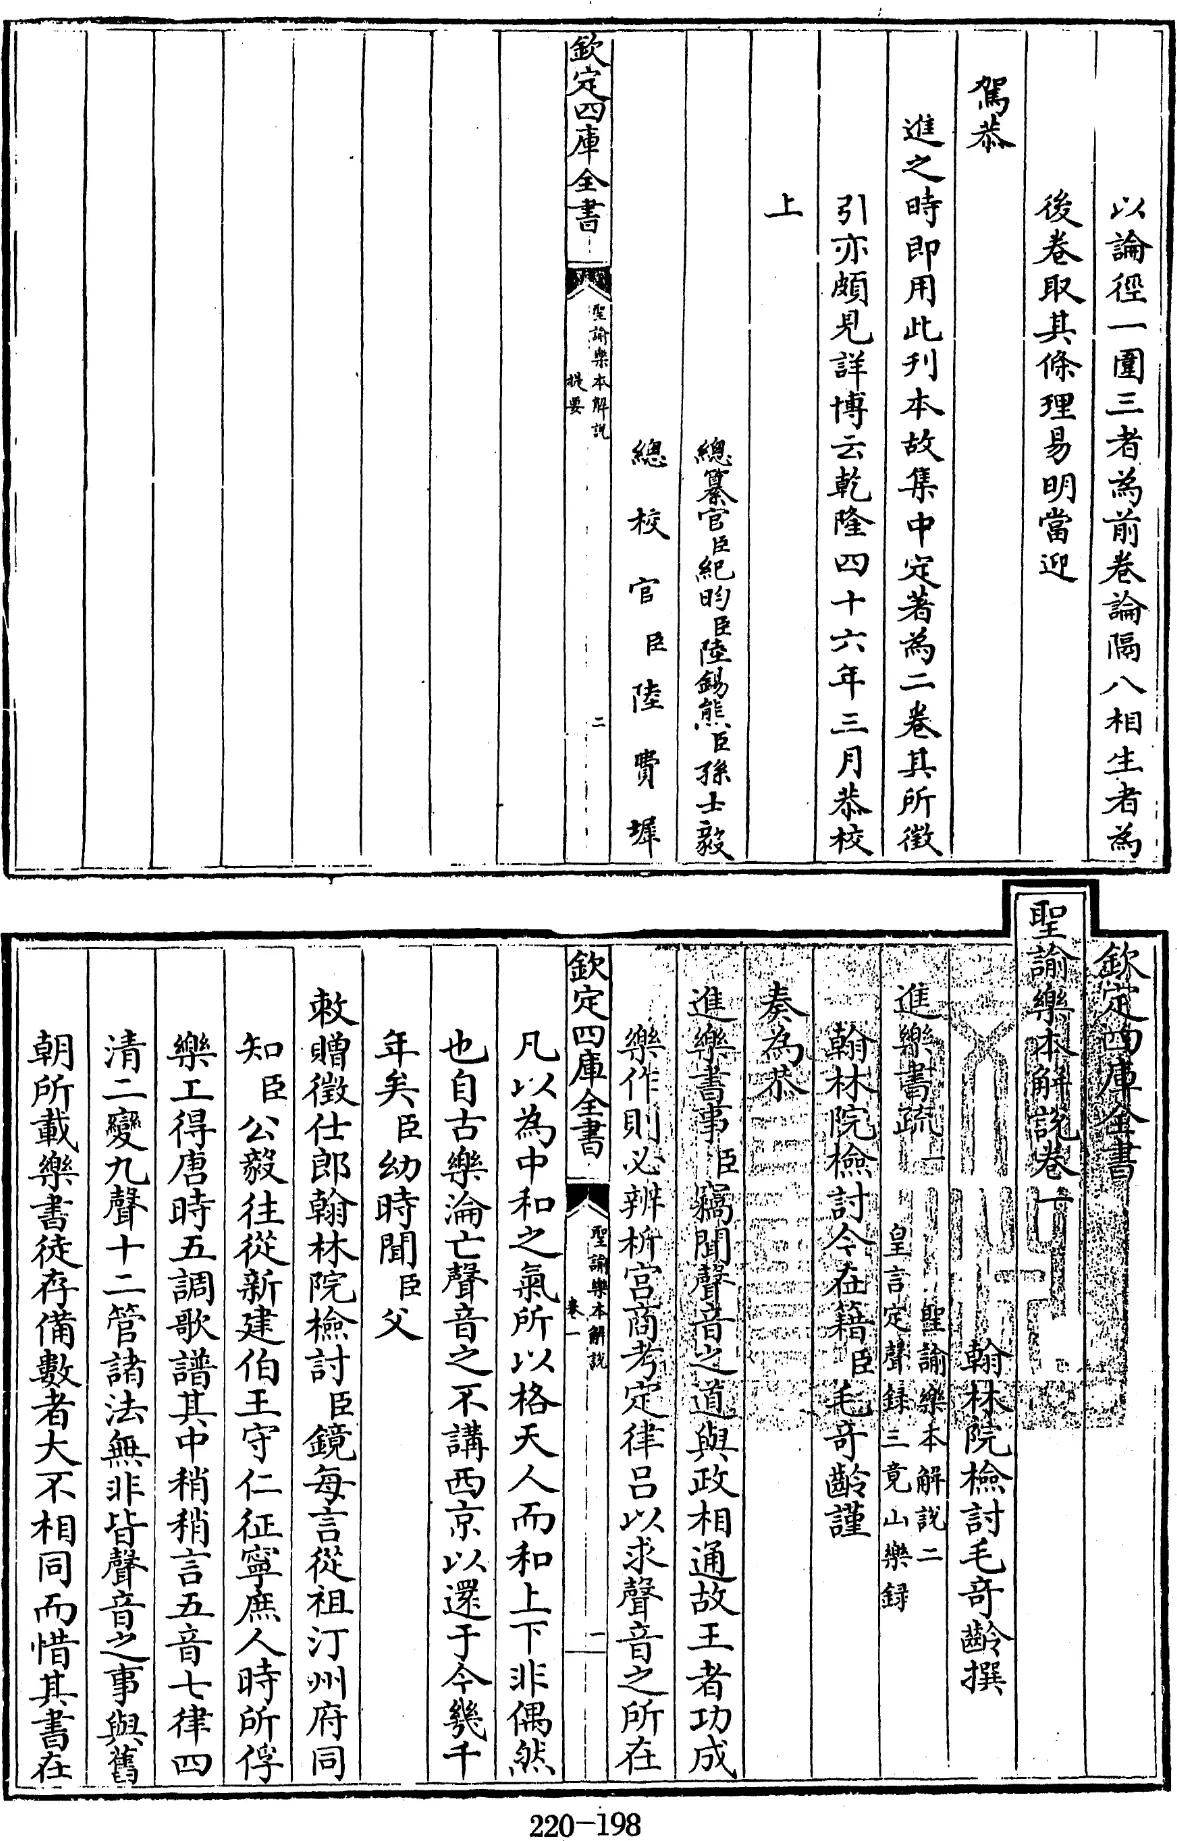 以論徑一圍三者為前卷論隔八相生者為
後卷取其條理易明當迎
駕恭
進之時即用此刋本故集中定著為二卷其所徵
引亦頗見詳博云乾隆四十六年三月恭校
上
總纂官臣紀昀臣陸錫熊臣孫士毅
總校官臣陸費墀
欽定四庫全書
聖諭樂本解說
提要
二
欽定四庫全書
聖諭樂本解說卷一
翰林院檢討毛奇齡撰
進樂書疏一
聖諭樂本解說二
皇言定聲録三竟山樂録
翰林院檢討今在籍臣毛奇齡謹
奏為恭
進樂書事臣竊聞聲音之道與政相通故王者功成
樂作則必辨析宫商考定律吕以求聲音之所在
欽定四庫全書
聖諭樂本解說
卷一
一
凡以為中和之氣所以格天人而和上下非偶然
也自古樂淪亡聲音之不講西京以還于今幾千
年矣臣幼時聞臣父
敕贈徵仕郎翰林院檢討臣鏡每言從祖汀州府同
知臣公毅往從新建伯王守仁征寧庶人時所俘
樂工得唐時五調歌譜其中稍稍言五音七律四
清二變九聲十二管諸法無非皆聲音之事與舊
朝所載樂書徒存備數者大不相同而惜其書在
220-198